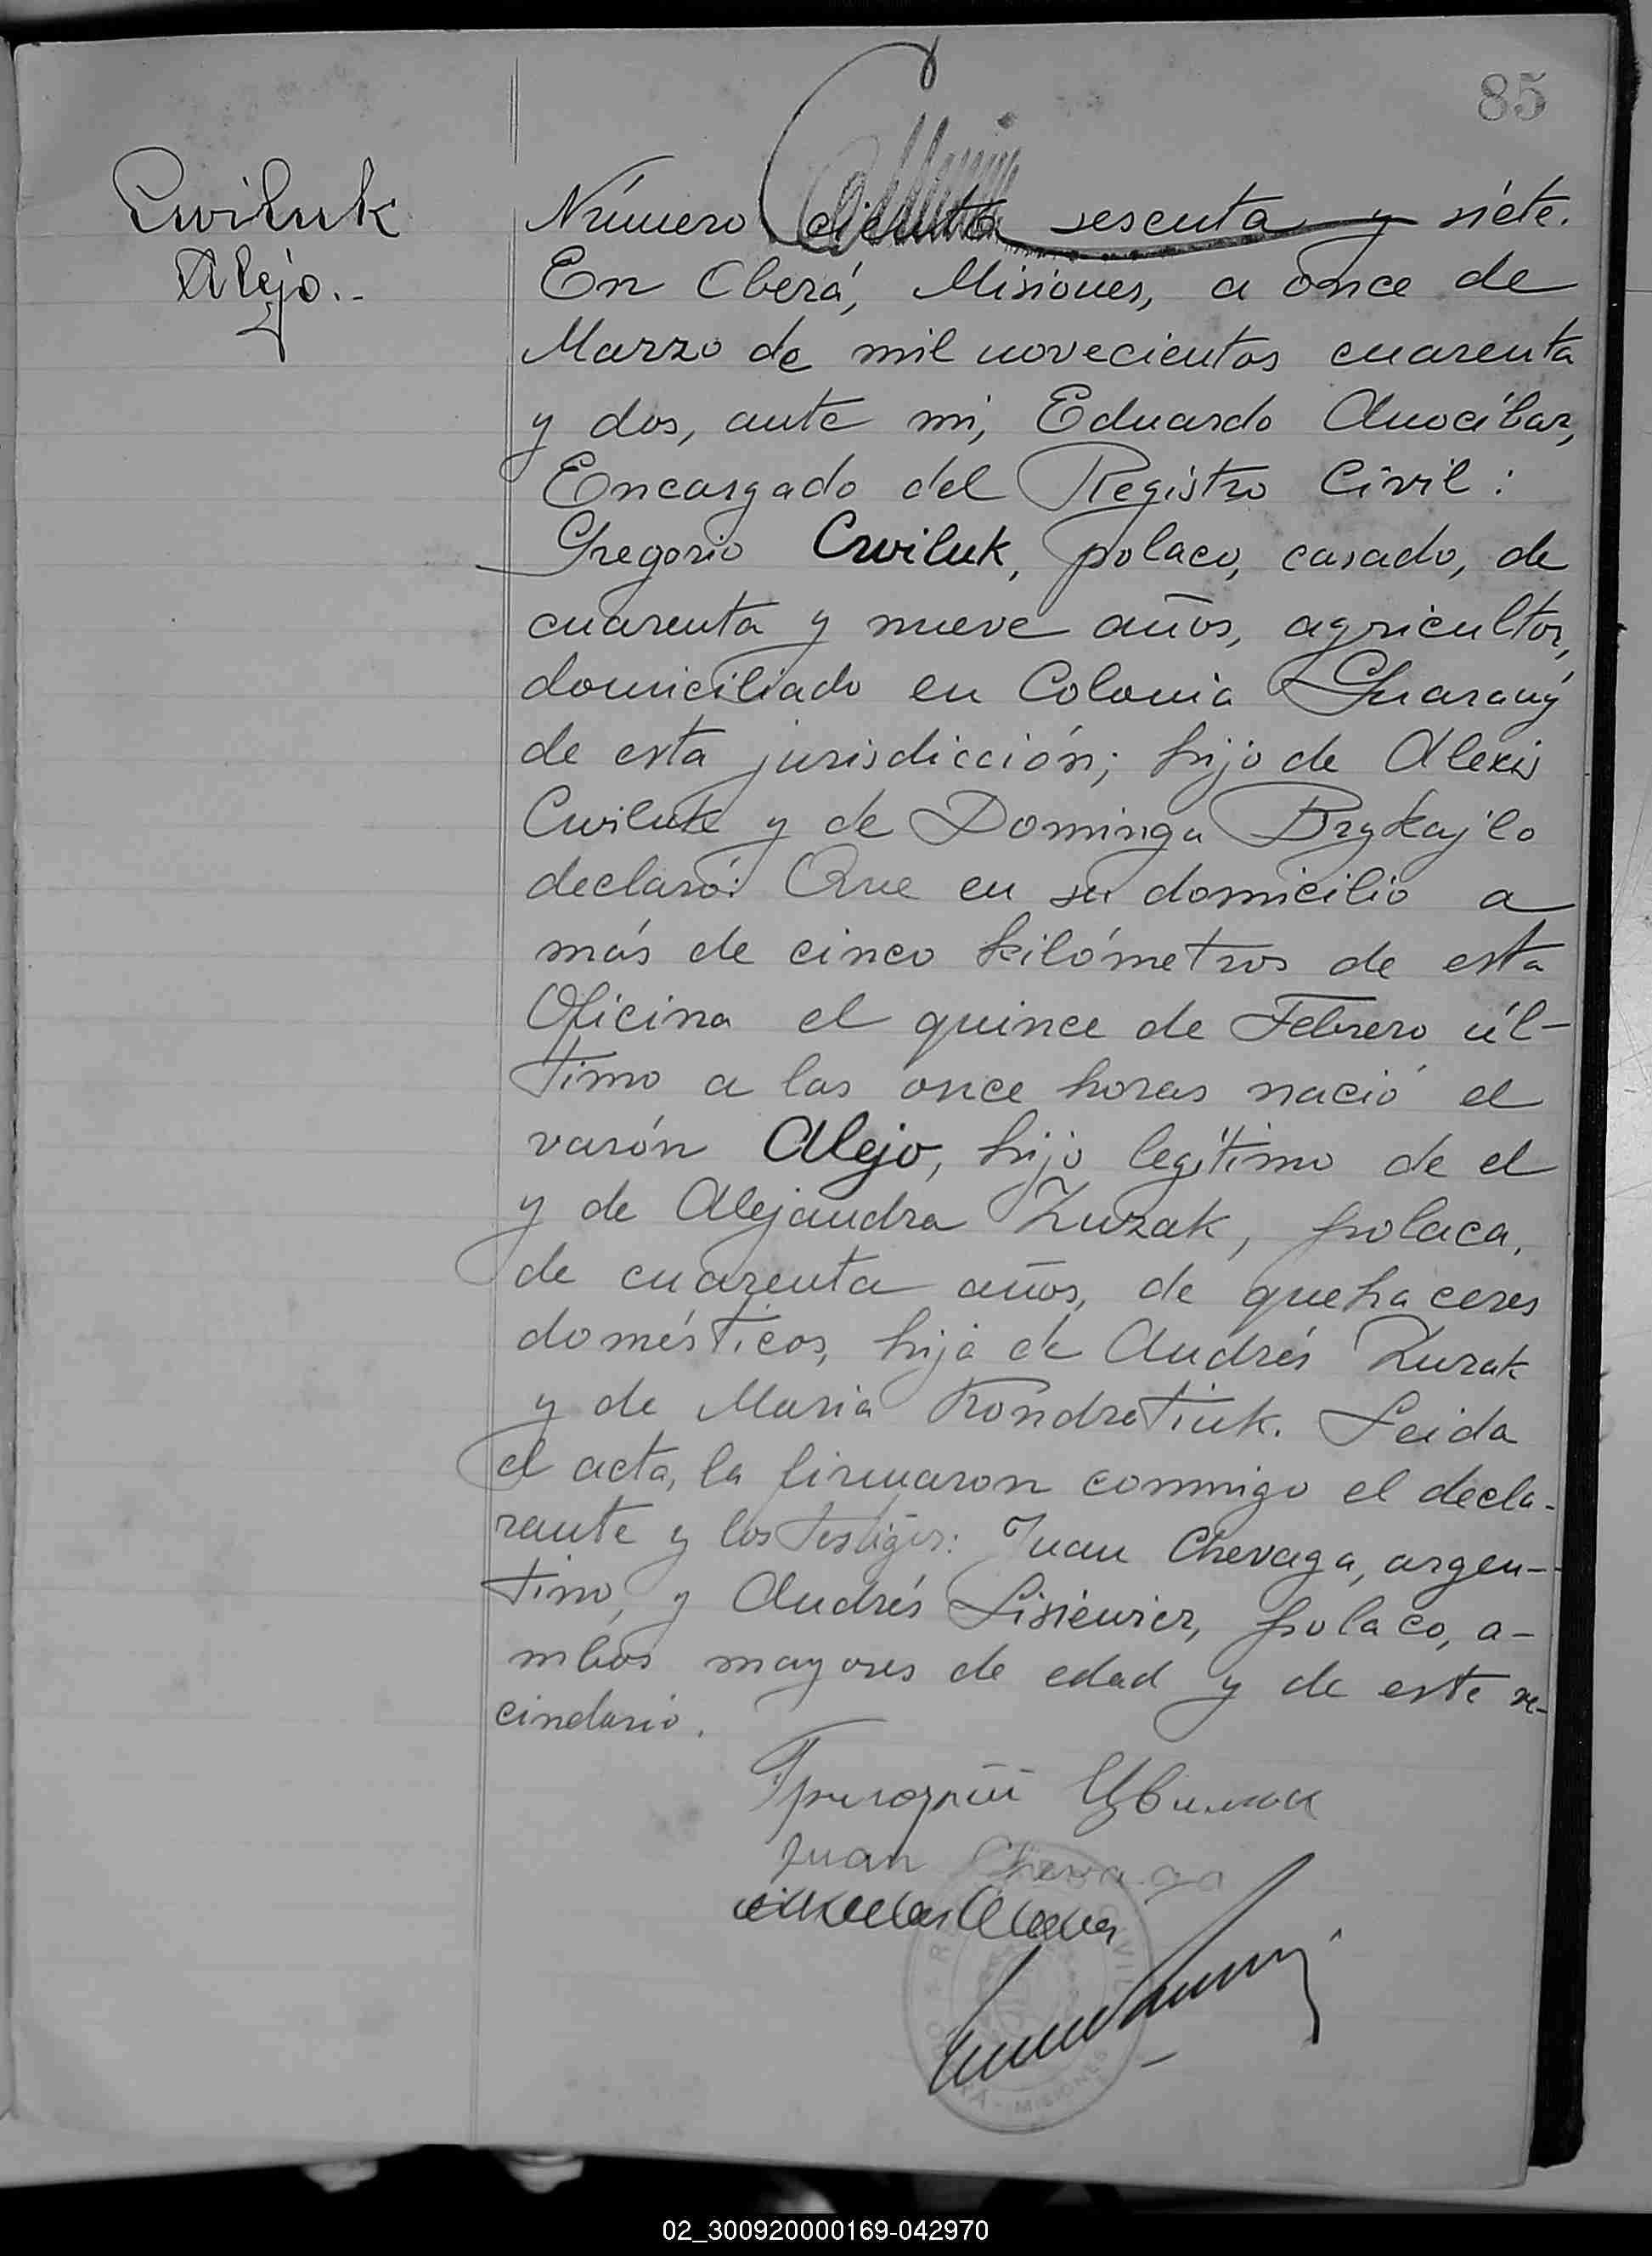 85
Cwiluk
Alejo.-
Número ciento sesenta y siete.
En Oberá, Misiones, a once de
Marzo de mil novecientos cuarenta
y dos, ante mi, Eduardo Anocíbar,
Encargado del Registro Civil:
Gregorio Cwiluk, polaco, casado, de
cuarenta y nueve años, agricultor,
domiciliado en Colonia Guarany
de esta jurisdicción; hijo de Alexis
Cwiluk y de Dominga Brykajlo
declaró: Que en su domicilio a
más de cinco kilómetros de esta
Oficina el quince de Febrero úl-
timo a las once horas nació el
varón Alejo, hijo legítimo de el
y de Alejandra Zuzak, polaca,
de cuarenta años, de quehaceres
domésticos, hija de Andrés Zuzak
y de Maria Kondratiuk. Leida
el acta, la firmaron conmigo el decla-
rante y los testigos: Juan Chevaga, argen-
tino, y Andrés Lisiewicz, polaco, a-
mbos mayores de edad y de este ve-
cindario.
Григорій Цвилюк
Juan Chevaga
MISIONES
02_300920000169-042970